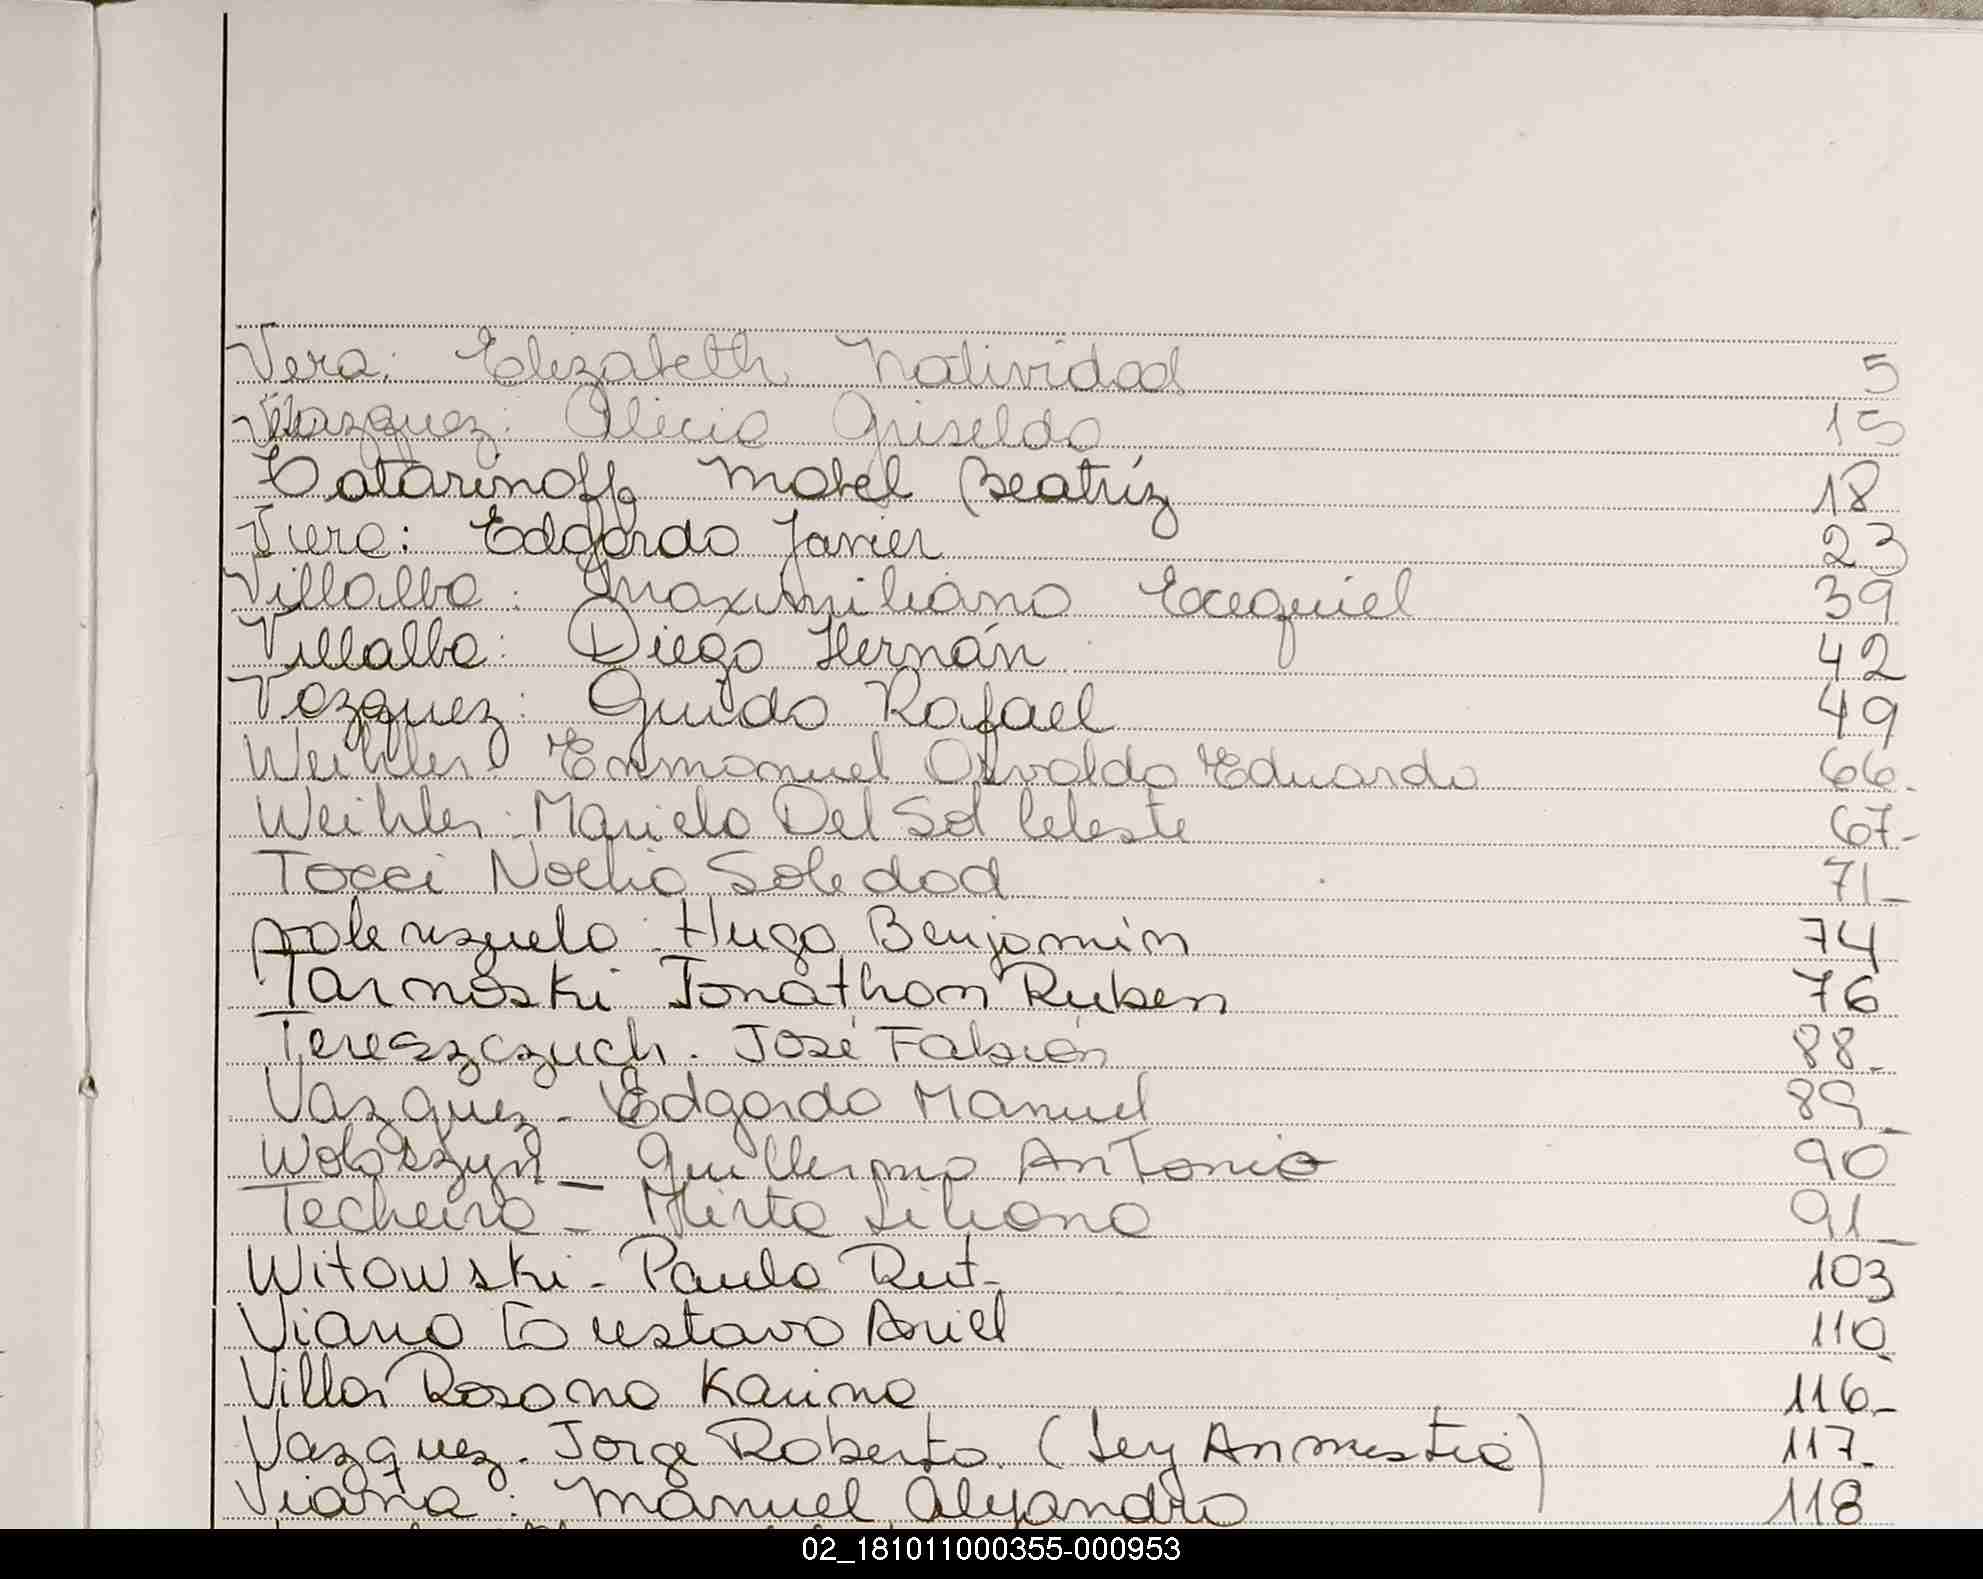 Vera: Elizabeth Natividad 5
Vázquez: Alicia Griselda 15
Tatarinoff Mabel Beatríz 18
Viera: Edgardo Javier 23
Villalba: Maximiliano Exequiel 39
Villalba: Diego Hernán 42
Vazquez: Guido Rafael 49
Weihler: Emmanuel Osvaldo Eduardo 66.
Weihler: Mariela Del Sol Celeste 67-
Tocci Noelia Soledad 71_
Valenzuela: Hugo Benjamín 74
Tarnoski Jonathan Ruben 76
Tereszczuch. José Fabián 88_
Vazquez - Edgardo Manuel 89_
Woloszyn _ Guillermo Antonio 90
Techeira - Mirta Liliana 91_
Witowski - Paula Rut- 103
Viana Gustavo Ariel 110
Villar Rosana Karina 116-
Vazquez. Jorge Roberto. (Ley Anmestia) 117-
Viana: Manuel Alejandro 118
02_181011000355-000953